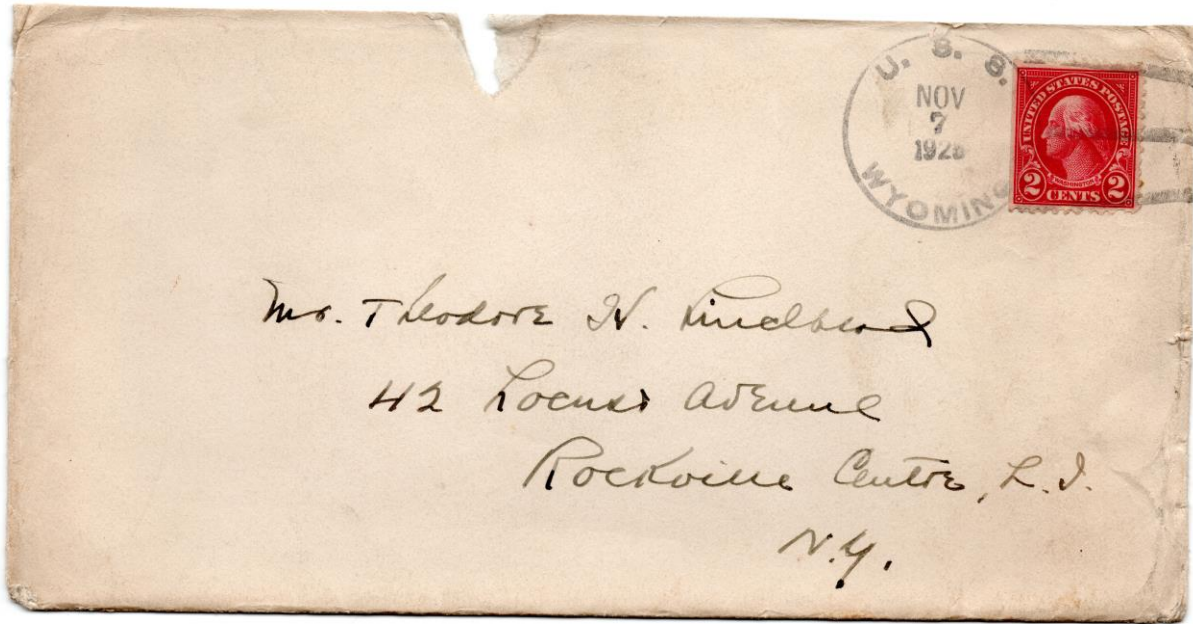 U. S. S.
NOV
7
192
WYOMING
UNITED STATES POSTAGE
WASHINGTON
2 CENTS 2
Mr. Theodore H. Lindblood
42 Locust Avenue
Rockville Centre, L.I.
N.Y.